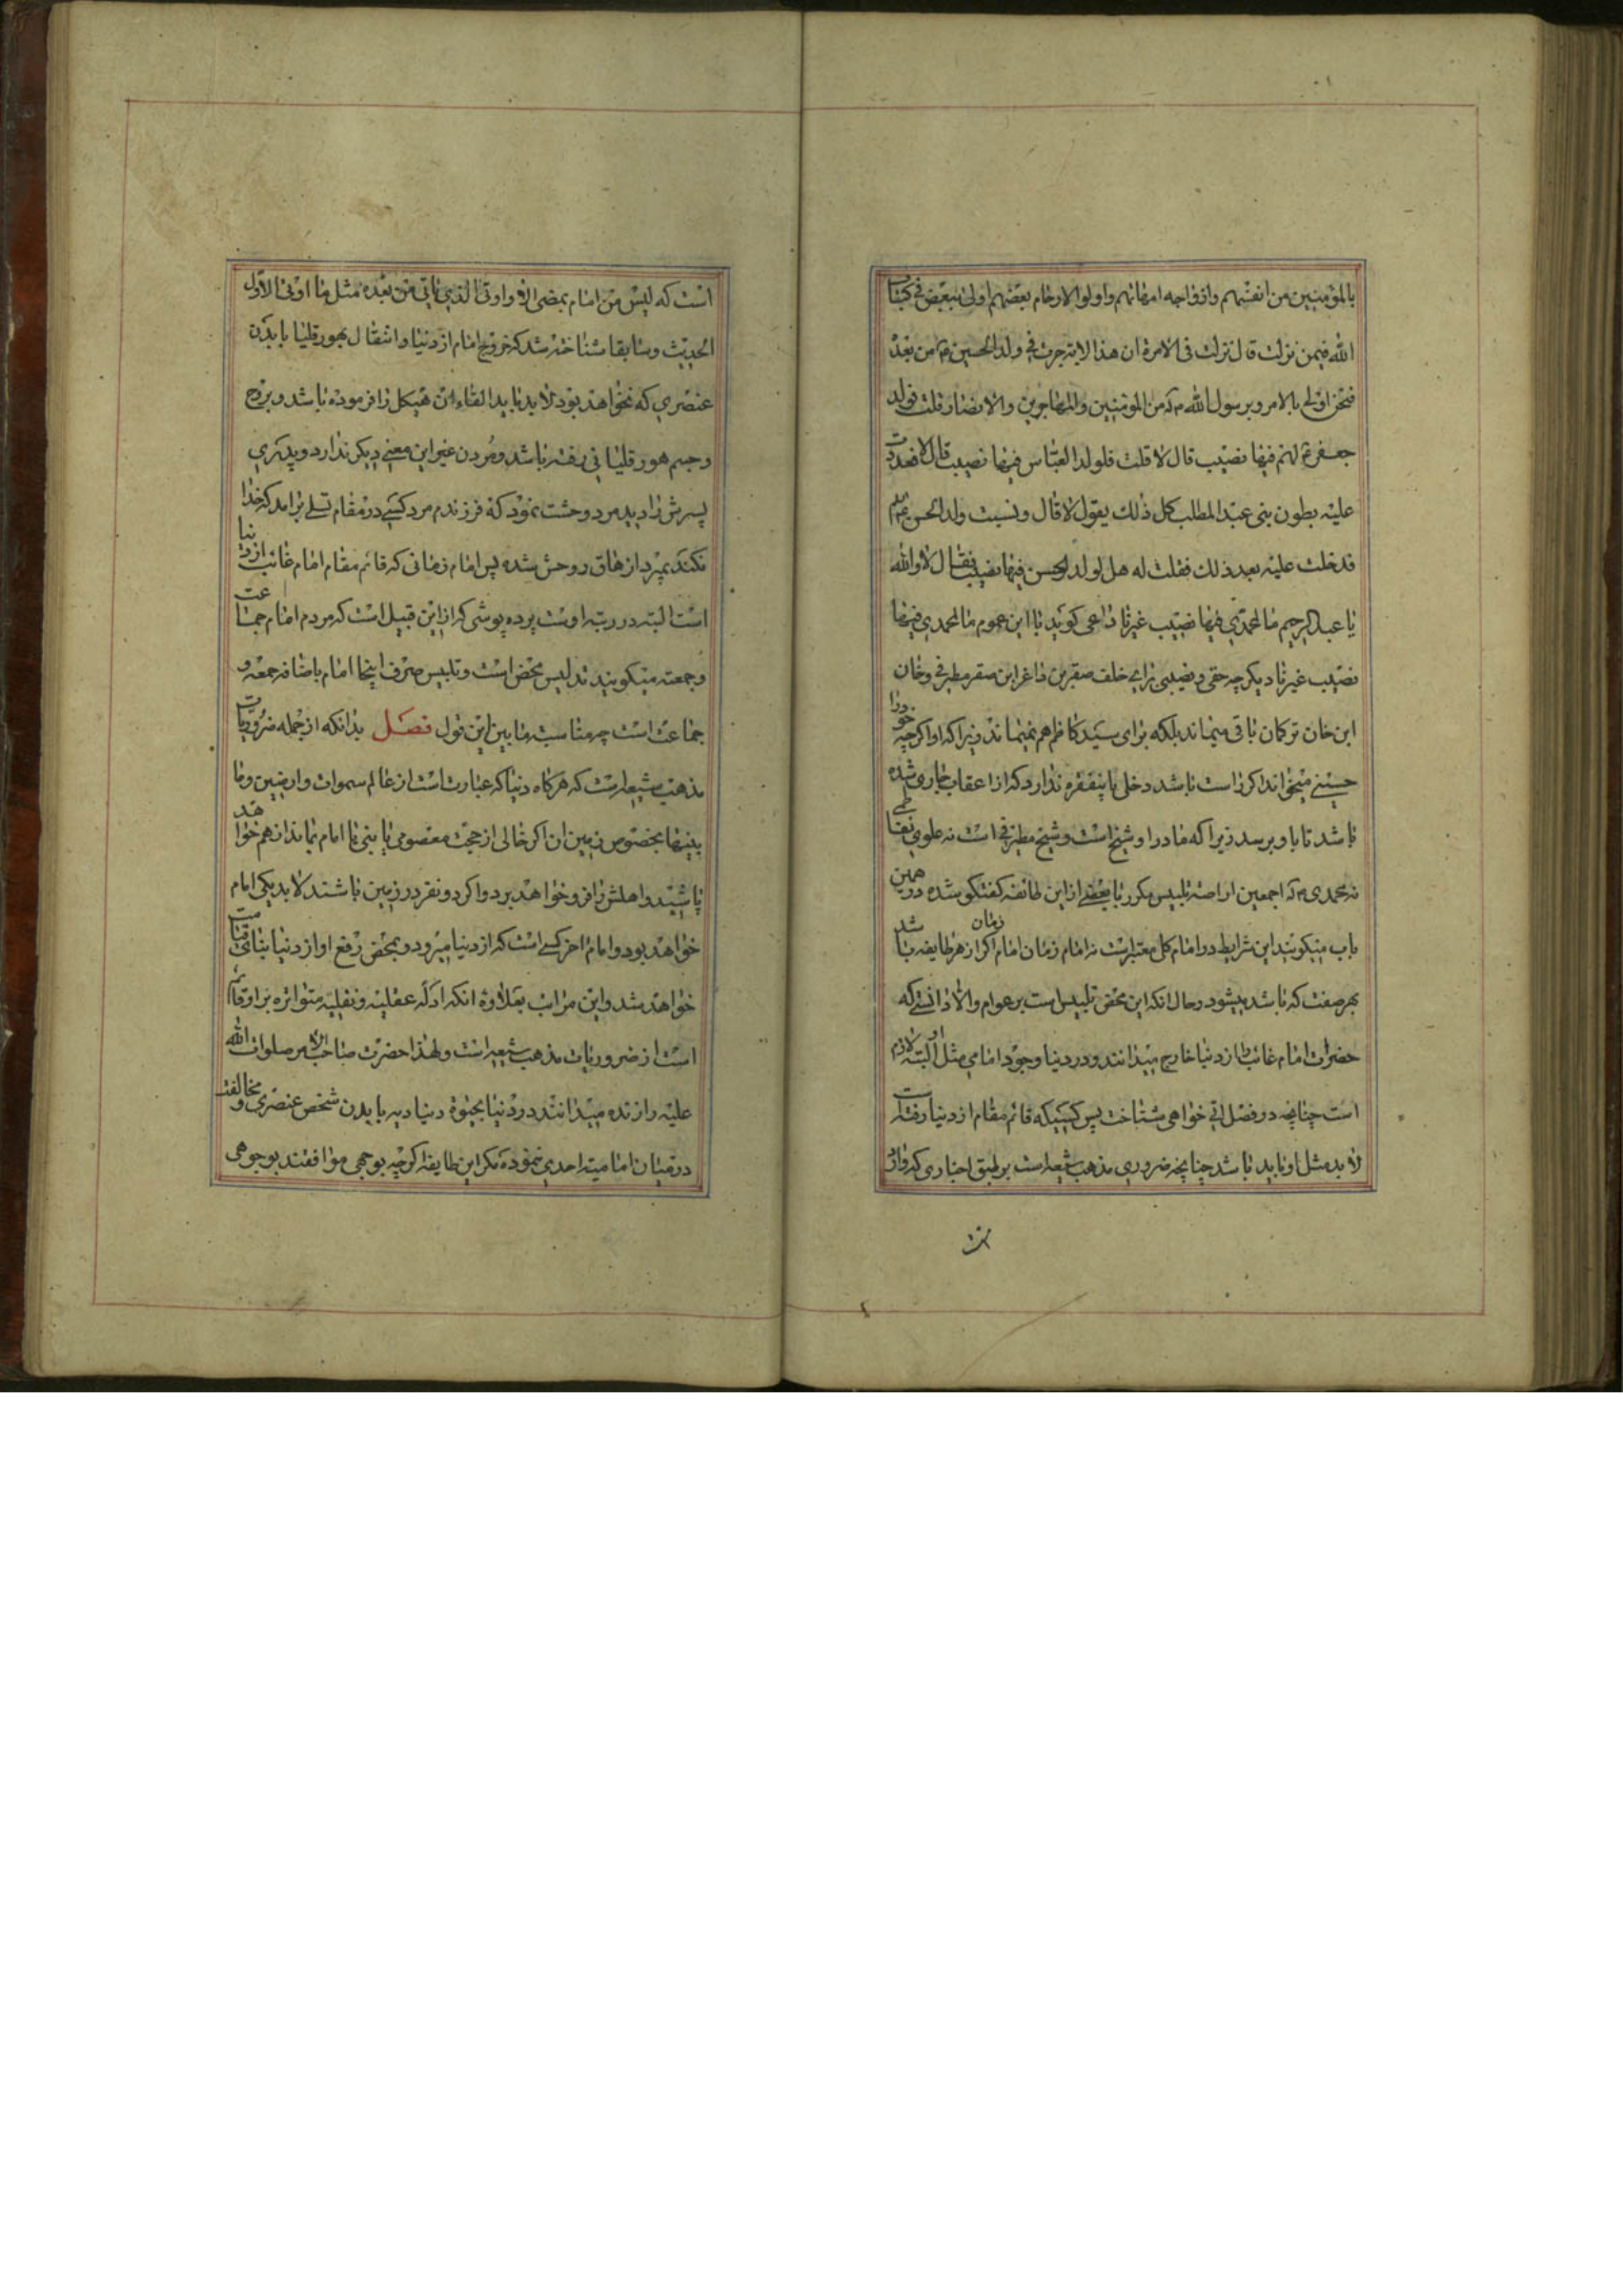 بالمؤمنین من انفسهم وازواجه امهاتهم واولوا الارحام بعضهم اولی ببعض فی کتاب
الله فیمن نزلت قال نزلت فی الامرة ان هذا الایة جرت فی ولد الحسین من بعده
فنحن اولی بالامر وبرسول الله من المومنین والمهاجرین والانصار قلت فولد
جعفر لهم فیها نصیب قال لا قلت فلولد العباس فیها نصیب قال لا فعددت
علیه بطون بنی عبد المطلب کل ذلک یقول لا قال ونسیت ولد الحسن
فدخلت علیه بعد ذلک فقلت له هل لولد الحسن فیها نصیب فقال لا والله
یا عبد الرحیم ما لمحمدی فیها نصیب غیرنا داعی کوید با این عموم ما لمحمدی فیها
نصیب غیرنا دیکر چه حقی و نصیبی برای خلف صقر بن ابن صقر وخان
ابن خان ترکمان باقی میماند بلکه برای سید کاظم هم نمیماند زیرا که او اکرچه خود را
حسینی میخواند اکر راست باشد دخلی باینفقره ندارد که از اعقاب جاری شده
باشد تا باو برسد زیرا که مادر او شیخ است و شیخ است نه علوی
نه محمدی تلبیس مکرر با بعضی از این طائفه کفتکو شده در همین
باب میکویند این شرایط در امام کل معتبر است نه امام زمان امام زمان اکر از هر طایفه باشد
بهر صفت که باشد میشود وحال انکه این محض تلبیس است بر عوام والا دانستی که
حضرات امام غائب را از دنیا خارج میدانند و در دنیا وجود امامی مثل او البته لازم
است چنانچه در فصل اتی خواهی شناخت پس کسیکه قائم مقام از دنیا رفته است
لا بد مثل او باید باشد چنانچه ضروری مذهب شیعه است بر طبق اخباری که وارد
است که لیس من امام یمضی الا واوتی الذی یاتی من بعده مثل ما اوتی الاول
الحدیث وسابقا شناخته شد که خروج امام از دنیا وانتقال بهور قلیا با بدن
عنصری که نخواهد بود لابد باید القاء ان هیکل را فرموده باشد و بروح
وجسم هور قلیائی رفته باشد و مردن غیر این معنی دیکر ندارد و پدری
پسرش را دید مرد وحشت نمود که فرزندم مرد کسی در مقام تسلی برامد که خدا
نکند بمیرد ازهاق روحش شده پس امام زمانی که قائم مقام امام غائب از دنیا
است البته در رتبه اوست پرده پوشی که از این قبیل است که مردم امام جماعت
وجمعه میکویند تدلیس محض است وتلبیس صرف اینجا امام باضافه جمعه و
جماعت است چه مناسبت مابین این قول فصل بدانکه از جمله ضروریات
مذهب شیعه است که هرکاه دنیا که عبارت است از عالم سموات وارضین وما
بینهما بخصوص زمین ان اکر خالی از حجت معصومی یا نبی یا امام بماند از هم خواهد
پاشید و اهلش را فرو خواهد برد و اکر دو نفر در زمین باشند لا بد یکی امام
خواهد بود و امام اخر کسی است که از دنیا میرود و بمحض رفع او از دنیا بنای قیامت
خواهد شد واین مراتب بعلاوه انکه ادله عقلیه ونقلیه متواتره بر او قائم
است از ضروریات مذهب شیعه است ولهذا حضرت صاحب الامر صلوات الله
علیه را زنده میدانند در دنیا بحیوة دنیادیه با بدن شخص عنصری و مخالفت
در میان امامیه احدی ننموده مکر این طایفه اکرچه بوجهی موافقند بوجوهی